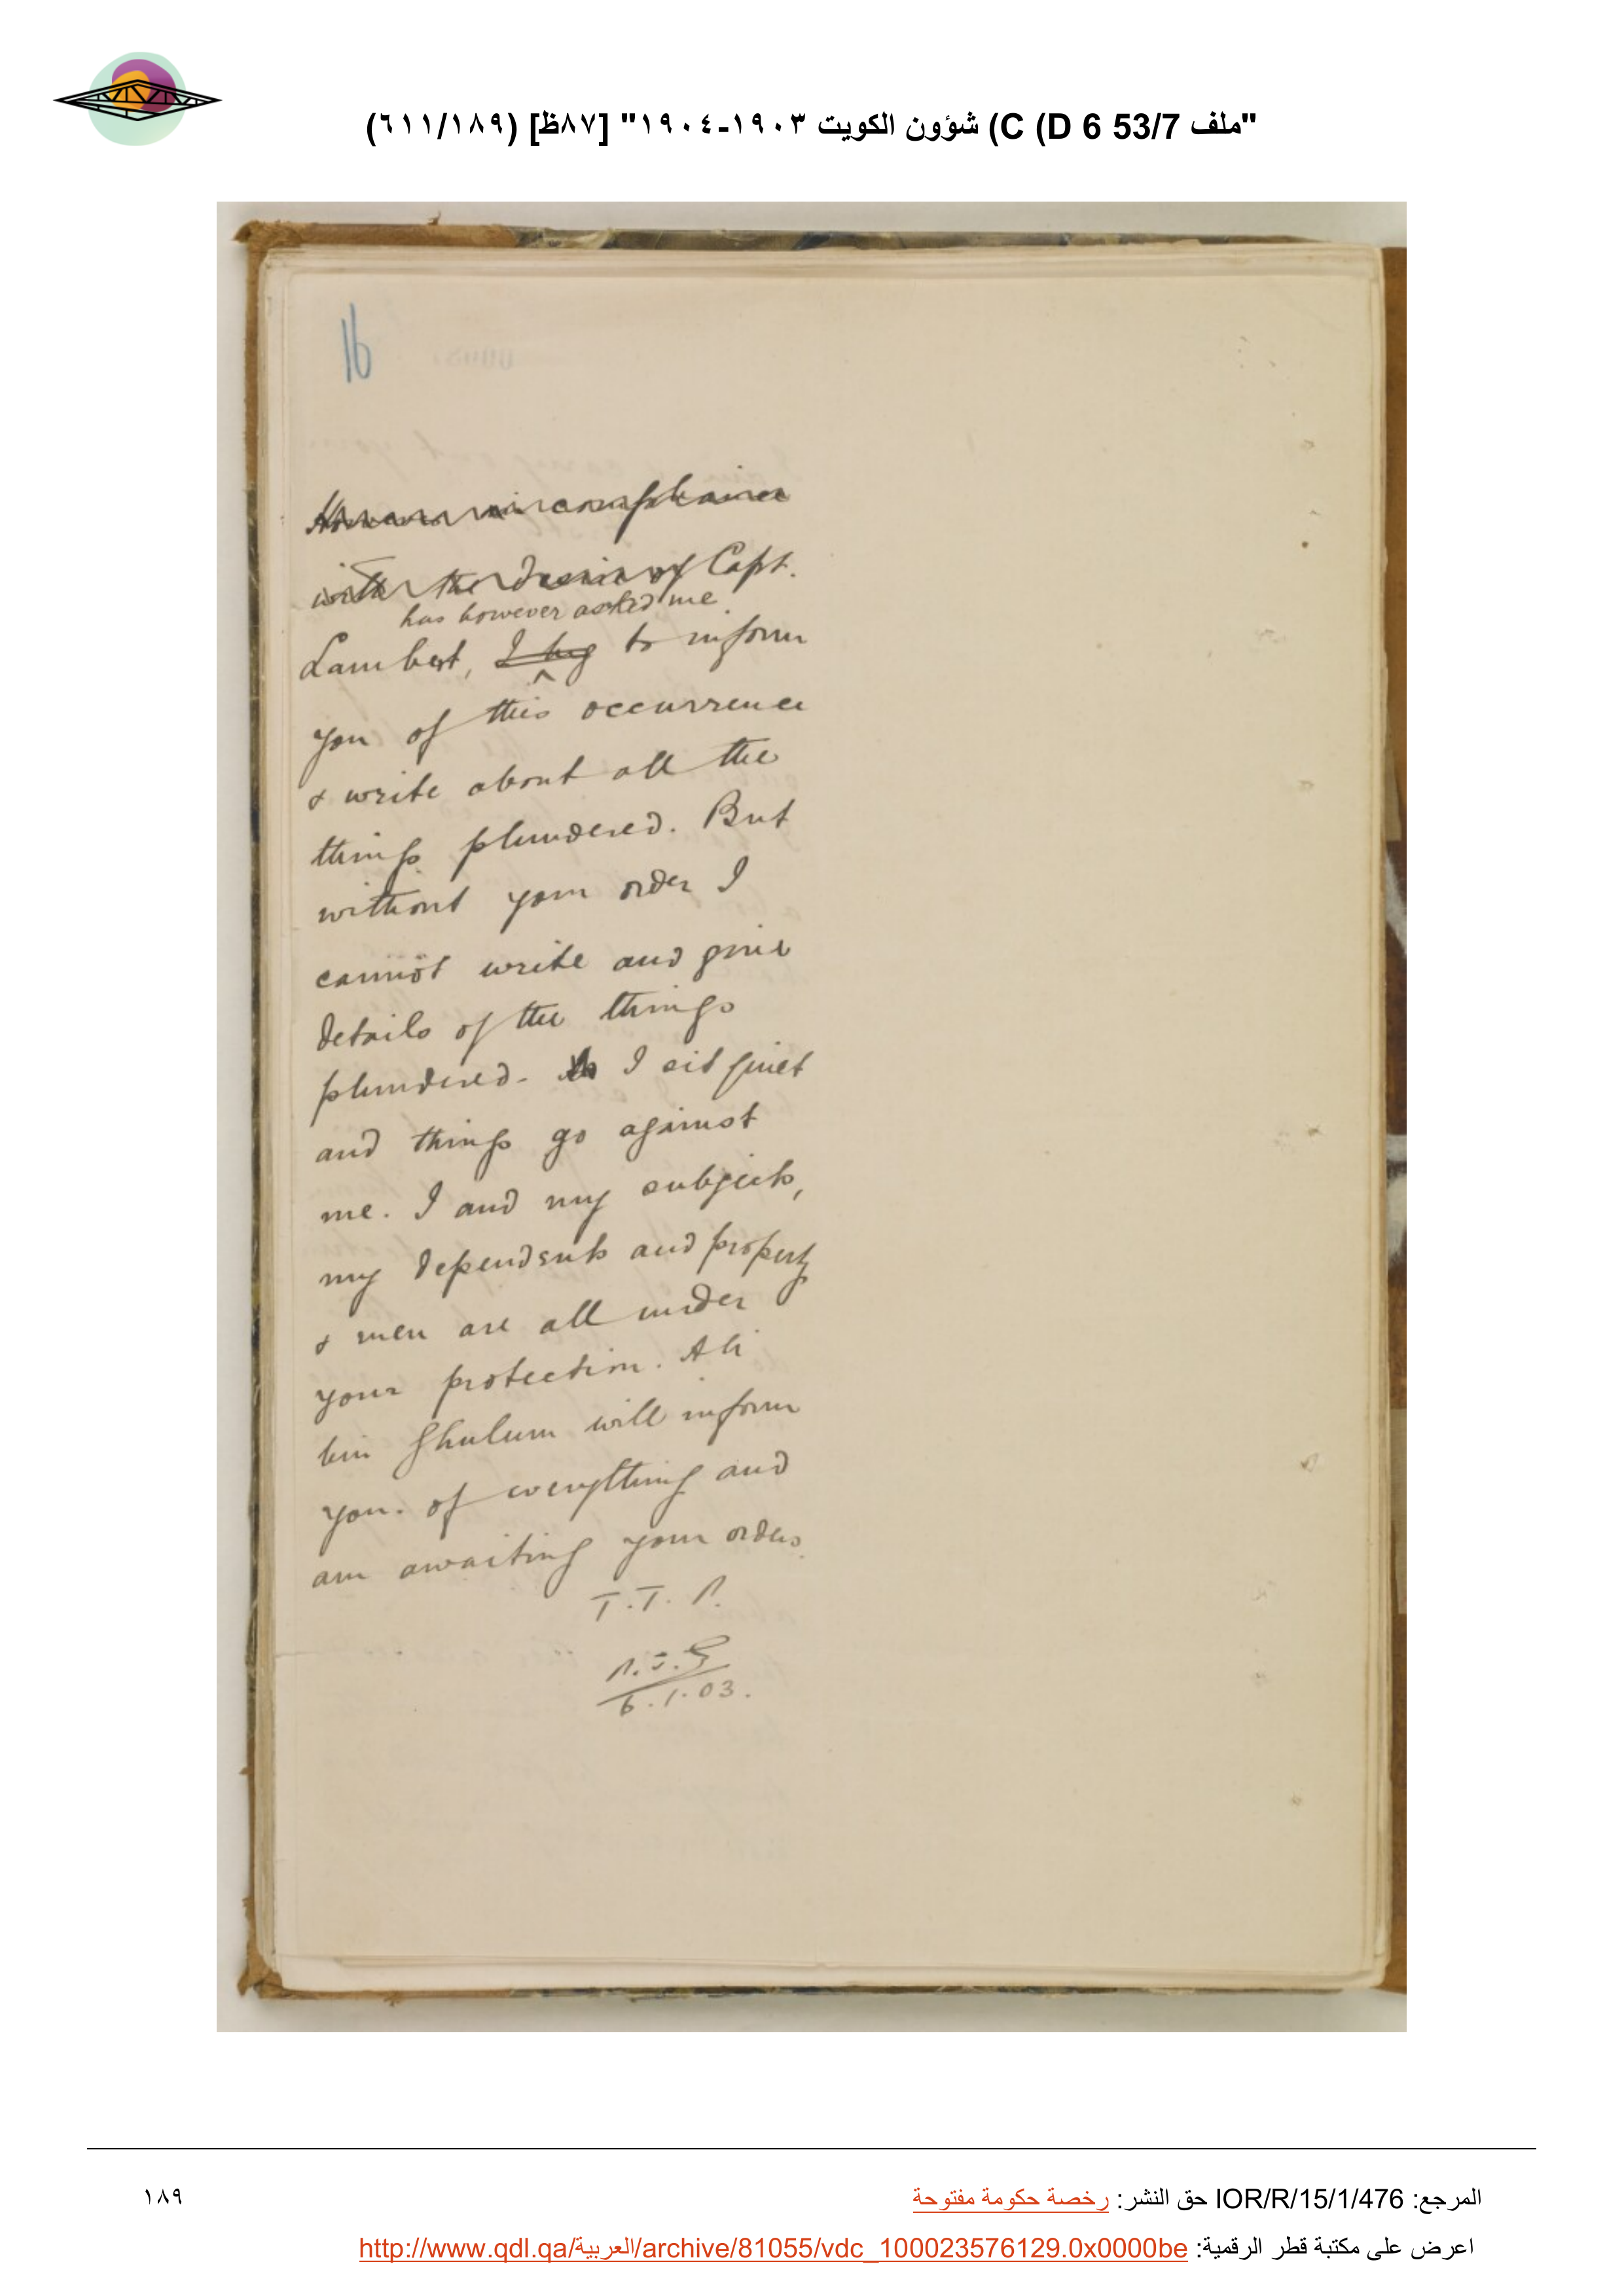 "ملف 53/7 C (D 6) شؤون الكويت ١٩٠٣-١٩٠٤" [٨٧ظ] (٦١١/١٨٩)
16
However in compliance
with the desire of Capt.
has however asked me
Lambert, I beg to inform
you of this occurrence
& write about all the
things plundered. But
without your order I
cannot write and give
details of the things
plundered. I sit quiet
and things go against
me. I and my subjects,
my dependents and property
& men are all under
your protection. Ali
bin Ghulum will inform
you. of everything and
am awaiting your orders.
T.T.P.
6.1.03.
المرجع: IOR/R/15/1/476 حق النشر: رخصة حكومة مفتوحة
١٨٩
اعرض على مكتبة قطر الرقمية: http://www.qdl.qa/العربية/archive/81055/vdc_100023576129.0x0000be